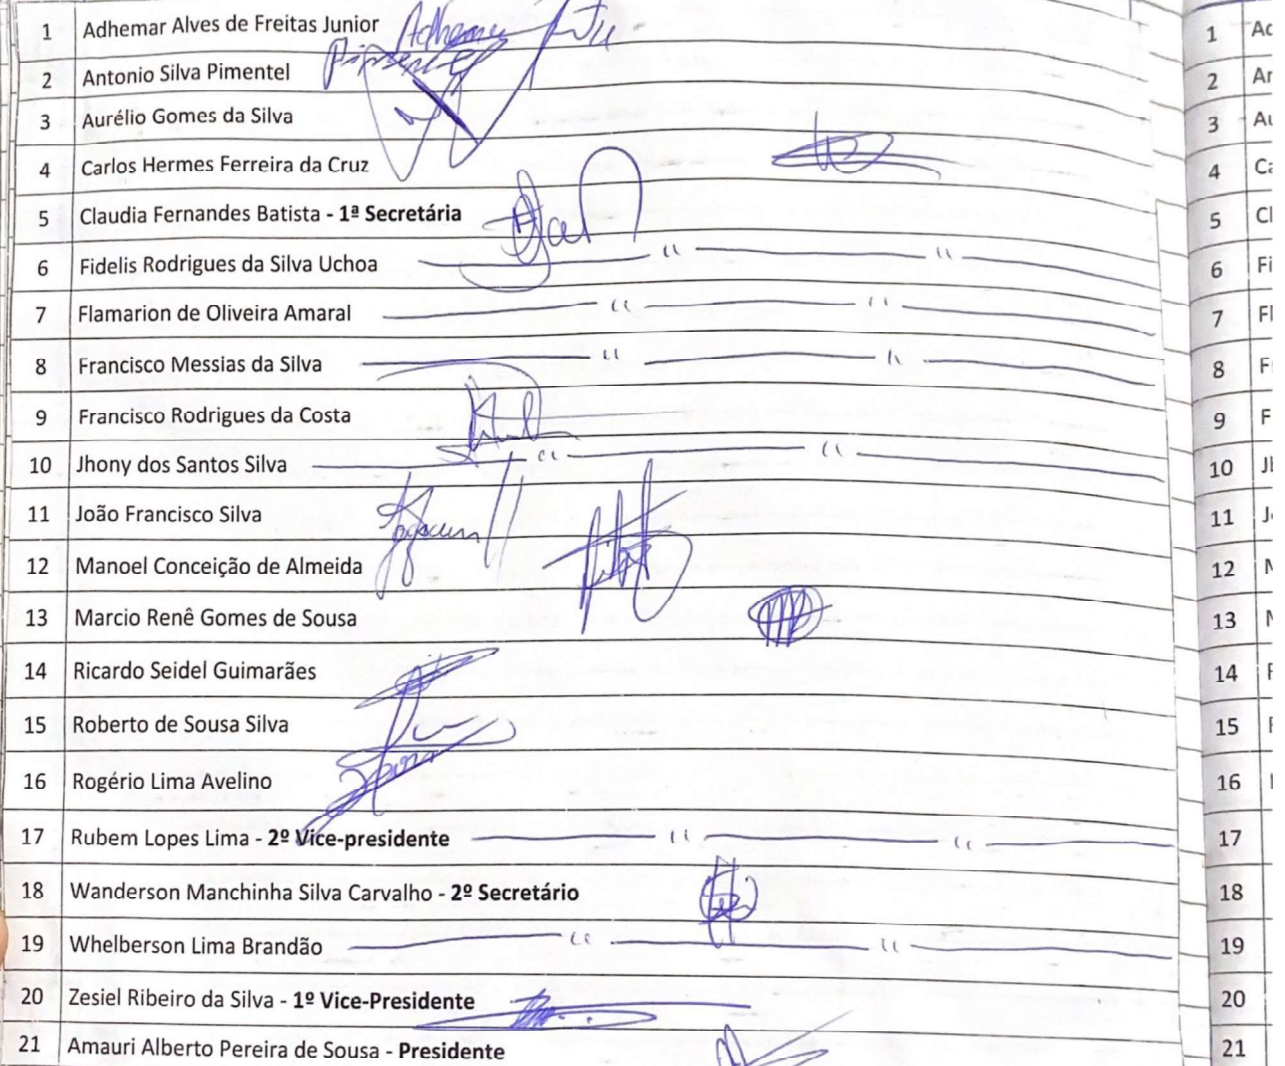 1 Adhemar Alves de Freitas Junior Adhemar Jr
2 Antonio Silva Pimentel Pimentel
3 Aurélio Gomes da Silva
4 Carlos Hermes Ferreira da Cruz
5 Claudia Fernandes Batista - 1ª Secretária
6 Fidelis Rodrigues da Silva Uchoa
7 Flamarion de Oliveira Amaral
8 Francisco Messias da Silva
9 Francisco Rodrigues da Costa
10 Jhony dos Santos Silva
11 João Francisco Silva
12 Manoel Conceição de Almeida
13 Marcio Renê Gomes de Sousa
14 Ricardo Seidel Guimarães
15 Roberto de Sousa Silva
16 Rogério Lima Avelino
17 Rubem Lopes Lima - 2º Vice-presidente
18 Wanderson Manchinha Silva Carvalho - 2º Secretário
19 Whelberson Lima Brandão
20 Zesiel Ribeiro da Silva - 1º Vice-Presidente
21 Amauri Alberto Pereira de Sousa - Presidente
1
2
3
4
5
6
7
8
9
10
11
12
13
14
15
16
17
18
19
20
21